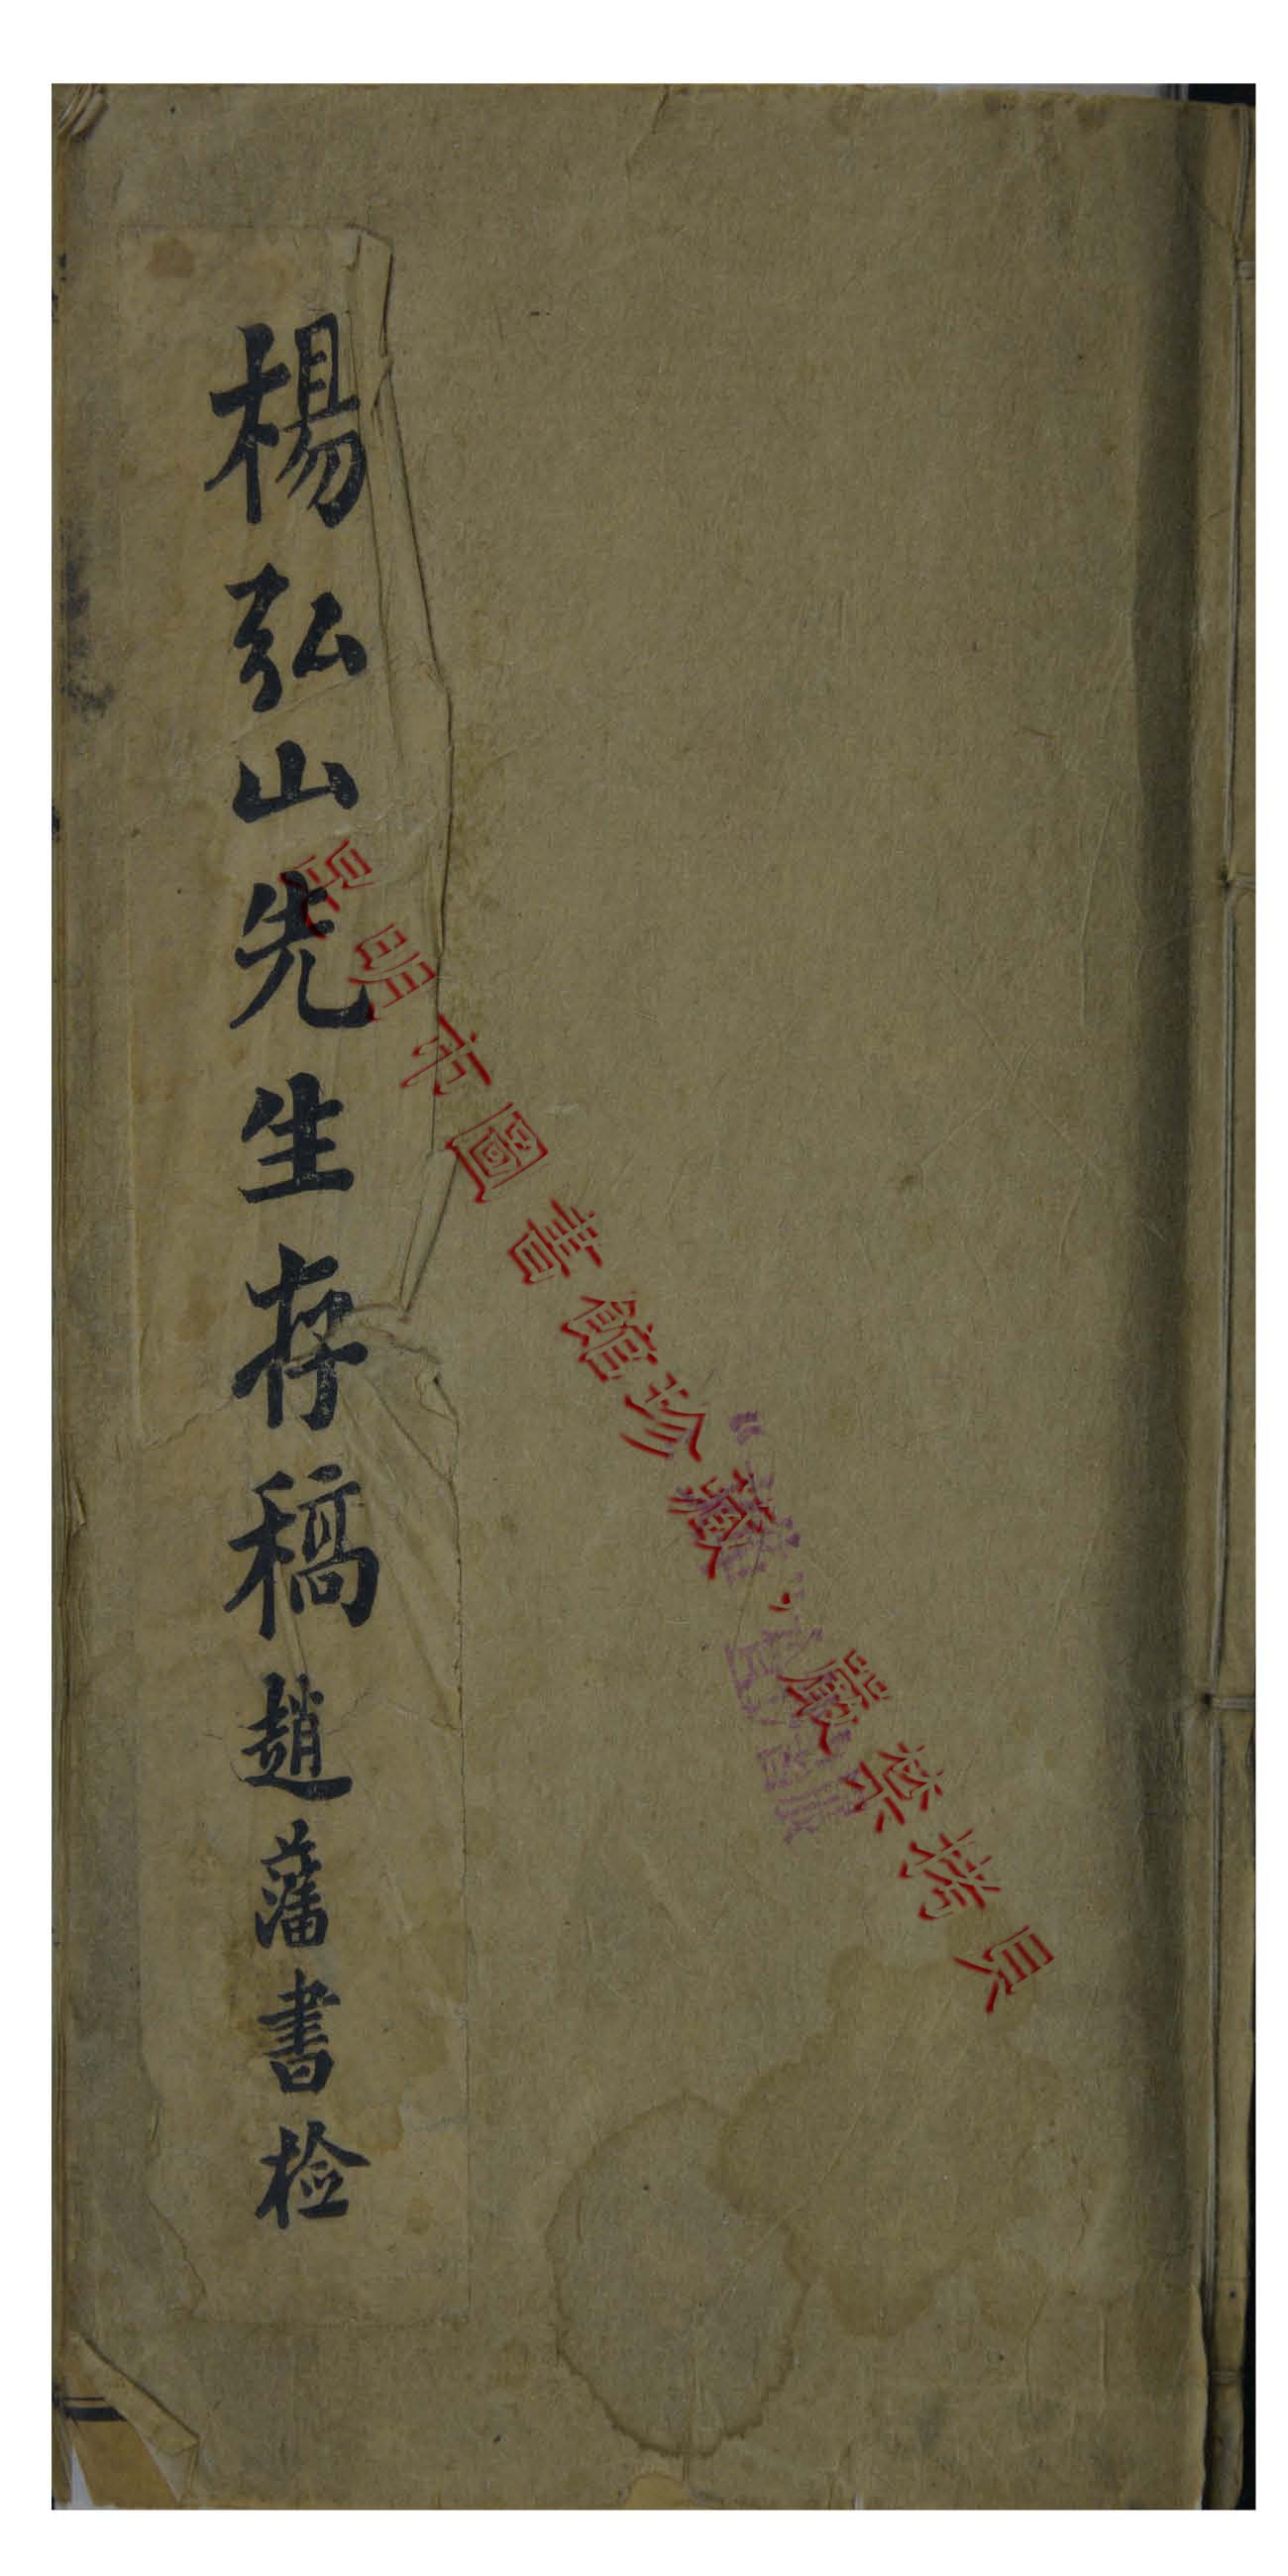 楊弘山先生存稿 趙藩書檢
昆明市圖書館珍藏，嚴禁拷貝